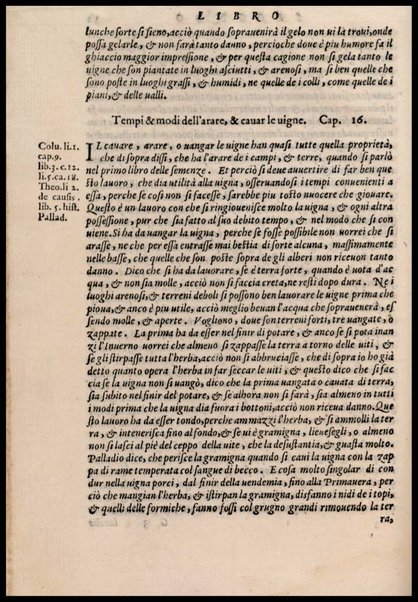 LIBRO
lunche sorte si sieno, acciò quando sopraverrà il gelo non ui la troui, onde
possa gelarle, & non farà tanto danno, percioche doue è piu humore fa il
ghiaccio maggior impressione, & per questa cagione non si gela tanto le
uigne che son piantate in luoghi asciutti, & arenosi, ma si ben quelle che
sono poste in luoghi grassi, & humidi, ne quelle de i colli, come quelle de
i piani, & delle ualli.
Tempi & modi dell'arare, & cauar le uigne. Cap. 16.
Colu. li. 1.
cap. 9.
lib. 3. c. 12.
li. 5. ca. 18.
Theo. li 2.
de causis.
lib. 5. hist.
Pallad.
IL cauare, arare, o uangar le uigne han quasi tutte quella proprietà,
che di sopra dissi, che ha l'arare de i campi, & terre, quando si parlò
nel primo libro delle semenze. Et perciò si deue auuertire di far ben que
sto lauoro, che dia utilità alla uigna, osseruandosi i tempi conuenienti a
essa, perche se cosi non si facesse, sarebbe piu tosto nuocere che giouare.
Questo è un lauoro con che si ringiouenisce molto la uigna, & ogni altra
possessione, pur che sia fatto al suo debito tempo, & nel modo che si con
uiene. Si ha da uangar la uigna, perche se fosse possibile non uorrei che si
arasse, ne che per essa entrasse mai bestia di sorte alcuna, massimamente
nelle basse, che quelle che son poste sopra de gli alberi non riceuon tanto
danno. Dico che si ha da lauorare, se è terra forte, quando è uota d'ac
qua, & non sia molle, acciò non si faccia creta, ne resti dopo dura. Ne i
luoghi arenosi, & terreni deboli si possono ben lauorare le uigne prima che
pioua, & anco è piu utile, acciò meglio beuan l'acqua che sopravenerà, es
sendo molle, & aperte. Vogliono, doue son terreni forti, tre uangate, o
zappate. La prima ha da esser nel finir di potare, & anco se si pota inan
zi l'Inuerno uorrei che almeno si zappasse la terra a torno delle uiti, &
se gli stirpasse tutta l'herba, acciò non si abbrucciasse, che di sopra io ho già
detto quanto opera l'herba in far seccar le uiti, & questo dico che si fac
cia se la uigna non si uangò, dico che la prima uangata o cauata di terra,
sia subito nel finir del potare, & se alhora non si farà, sia almeno in tutti
i modi prima che la uigna dia fuora i bottoni, acciò non riceua danno. Que
sto lauoro ha da esser tondo, perche ammazzi l'herba, & si ammolli la ter
ra, & intenerisca fino al fondo, & se ui è gramigna, lieuesegli, & almeno
non si lasci al piè del ceppo della uite, che la desustantia, & guasta molto.
Palladio dice, che perisce la gramigna quando si caui la uigna con la zap
pa di rame temperata col sangue di becco. E cosa molto singolar di con
dur nella uigna porci, dal finir della uendemia, fino alla Primauera, per
ciò che mangian l'herba, & istirpan la gramigna, disfanno i nidi de i topi,
& quelli delle formiche, fanno fossi col grugno grandi rimouendo la ter
ra,